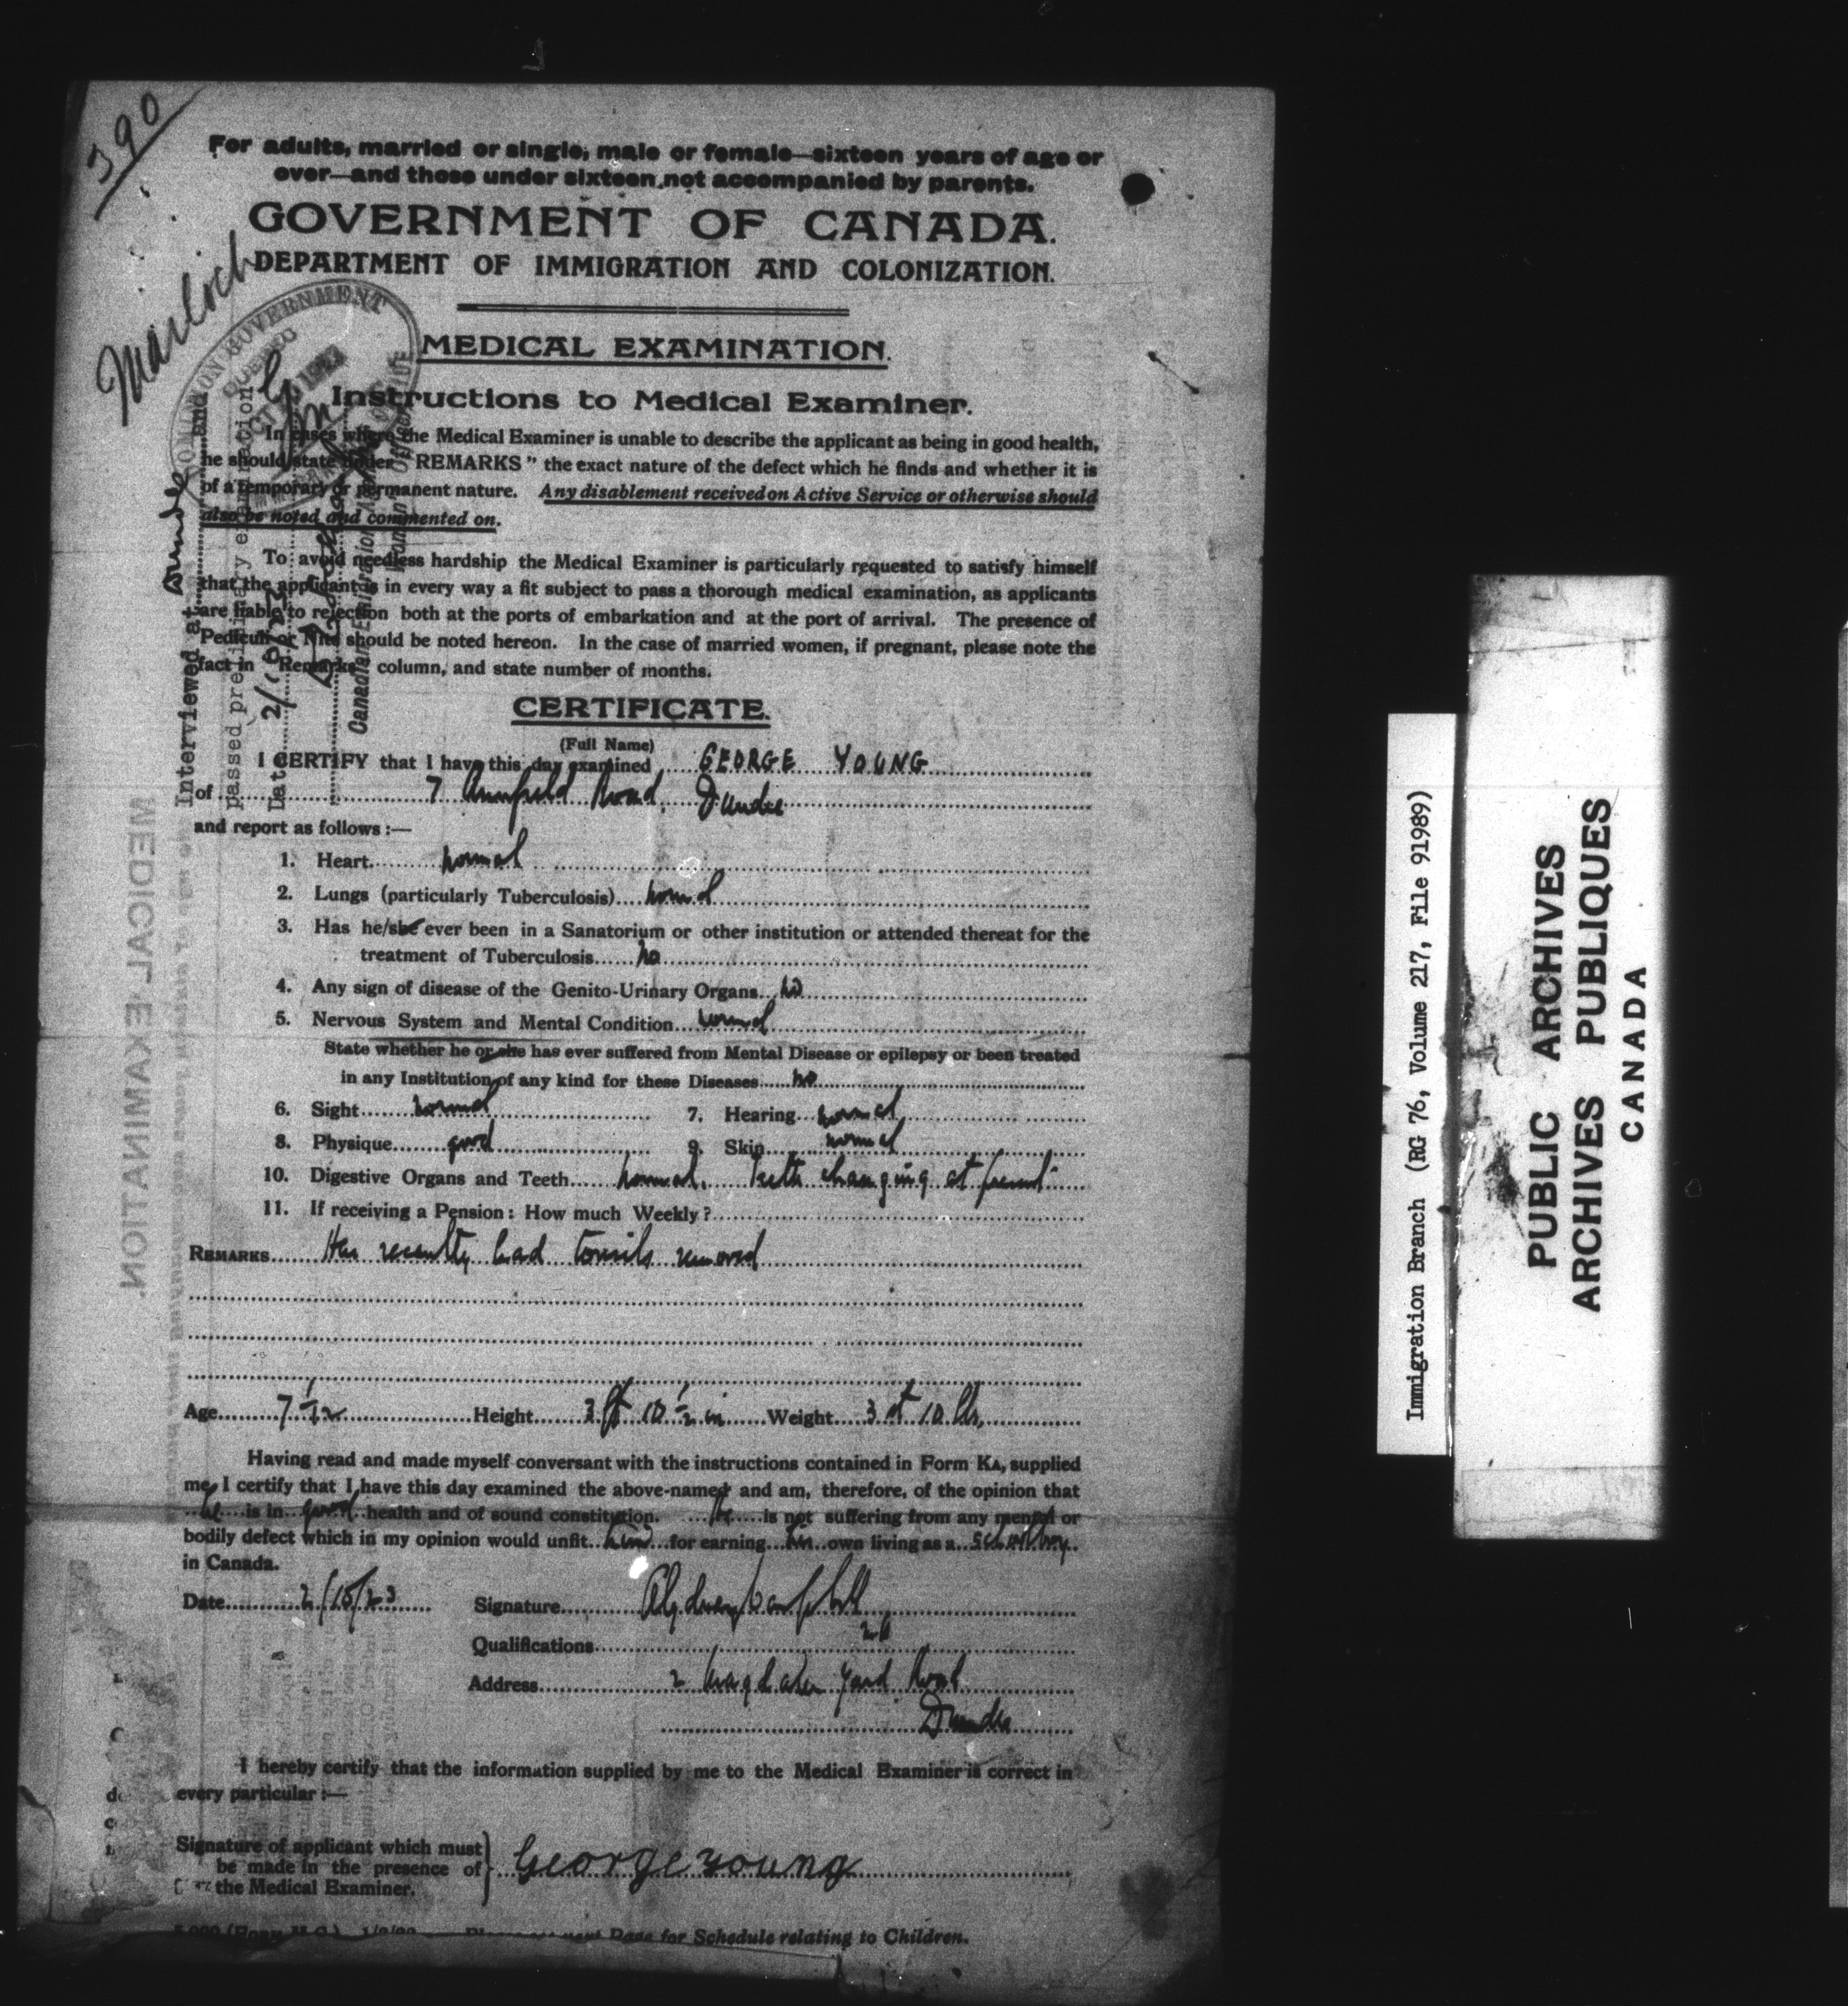 390
For adults, married or single, male or female—sixteen years of age or
over—and those under sixteen, not accompanied by parents.
GOVERNMENT OF CANADA.
DEPARTMENT OF IMMIGRATION AND COLONIZATION.
Marloch
DOMINION GOVERNMENT
QUEBEC
MEDICAL EXAMINATION.
Instructions to Medical Examiner.
In cases where the Medical Examiner is unable to describe the applicant as being in good health,
he should state under "REMARKS" the exact nature of the defect which he finds and whether it is
of a temporary or permanent nature. Any disablement received on Active Service or otherwise should
also be noted and commented on.
To avoid needless hardship the Medical Examiner is particularly requested to satisfy himself
that the applicant is in every way a fit subject to pass a thorough medical examination, as applicants
are liable to rejection both at the ports of embarkation and at the port of arrival. The presence of
Pediculi or Nits should be noted hereon. In the case of married women, if pregnant, please note the
fact in "Remarks" column, and state number of months.
Interviewed at Dundee and
passed preliminary examination
Date 2/10/23
CERTIFICATE.
(Full Name)
I CERTIFY that I have this day examined GEORGE YOUNG
of 7 Annfield Road, Dundee
and report as follows :—
1. Heart normal
2. Lungs (particularly Tuberculosis) normal
3. Has he/she ever been in a Sanatorium or other institution or attended thereat for the
treatment of Tuberculosis no
4. Any sign of disease of the Genito-Urinary Organs no
5. Nervous System and Mental Condition normal
State whether he or she has ever suffered from Mental Disease or epilepsy or been treated
in any Institution of any kind for these Diseases no
6. Sight normal 7. Hearing normal
8. Physique good 9. Skin normal
10. Digestive Organs and Teeth normal. Teeth changing at present
11. If receiving a Pension: How much Weekly?
REMARKS Has recently had tonsils removed
Age 7 1/12 Height 3 ft 10 1/2 in Weight 3 st 10 lbs.
Having read and made myself conversant with the instructions contained in Form KA, supplied
me, I certify that I have this day examined the above-named and am, therefore, of the opinion that
he is in good health and of sound constitution. He is not suffering from any mental or
bodily defect which in my opinion would unfit him for earning his own living as a schoolboy
in Canada.
Date 2/10/23 Signature Campbell
Qualifications
Address 2 Magdalen Yard Road
Dundee
I hereby certify that the information supplied by me to the Medical Examiner is correct in
every particular :—
Signature of applicant which must
be made in the presence of
the Medical Examiner.
George Young
Page for Schedule relating to Children.
MEDICAL EXAMINATION.
Immigration Branch (RG 76, Volume 217, File 91989)
PUBLIC ARCHIVES
ARCHIVES PUBLIQUES
CANADA